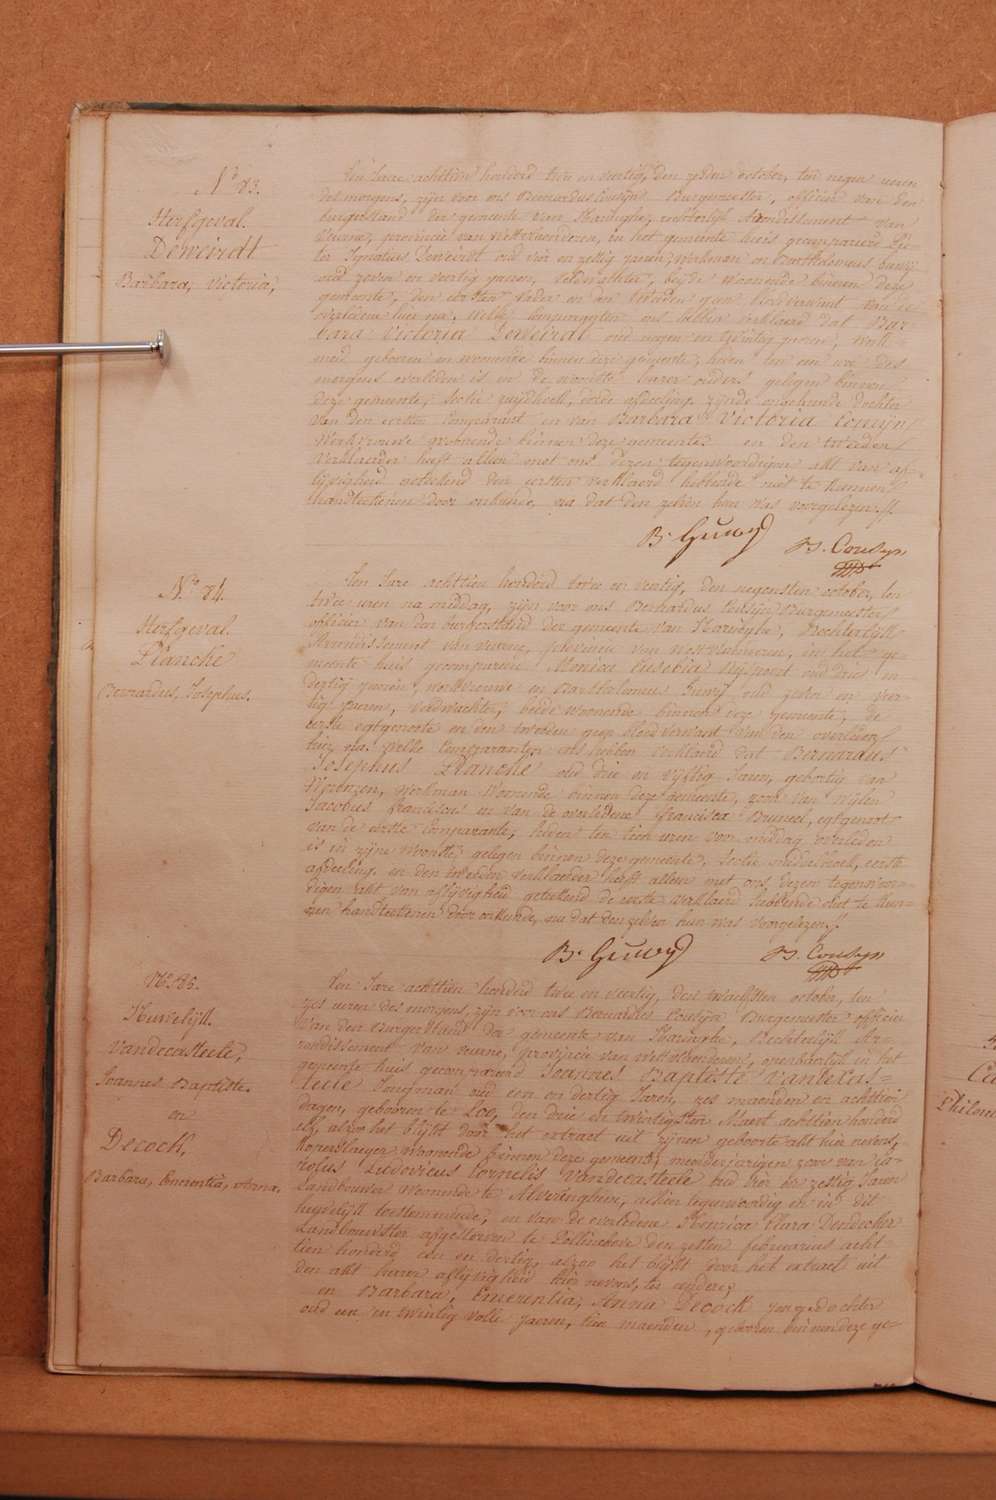 N.º 83.
Sterfgeval.
Deweirdt
Barbara, Victoria,
Ten Jare achttien honderd twee en veertig, den zesden october, ten negen uren
des morgens, zijn voor ons Bernardus Cousijn Burgemeester, officier van den
burgerstand der gemeente van Haringhe, rechterlijk Arrondissement van
Veurne, provincie van Westvlaenderen, in het gemeente huis gecompareerd
ter Ignatius Deweirdt oud vier en zestig jaren, Werkman en Bartholomeus
oud zeven en veertig jaren, veldwachter, beyde woonende binnen deze
gemeente, den eersten vader en den tweeden geen bloedverwant van de
overledene hier na, Welke comparanten ons hebben verklaerd dat Bar-
bara Victoria Deweirdt oud negen en twintig jaren,
geboren en woonende binnen deze gemeente, heden ten een ure des
morgens overleden is in de woonste harer ouders gelegen binnen
deze gemeente, sectie zuydhoek, derde afdeeling, zijnde ongehuwde dochter
van den eersten comparant en van Barbara Victoria Couzijn
Werkvrouwe woonende binnen deze gemeente en den tweeden
verklaerder heeft alleen met ons dezen tegenwoordigen akt van af-
lijvigheid geteekend den eersten verklaerd hebbende niet te kunnen
handteekenen door onkunde, na dat den zelven hun was voorgelezen.
B. Gruwy B. Cousyn
N.º 84.
Sterfgeval.
Plancke
Bernardus, Josephus.
Ten Jare achttien honderd twee en veertig, den negensten october, ten
twee uren na middag, zijn voor ons Bernardus Cousijn Burgemeester
officier van den burgerstand der gemeente van Haringhe, Rechterlijk
Arrondissement van Veurne, provincie van Westvlaenderen, in het ge-
meente huis gecompareerd Monica Eusebia oud drie en
dertig jaren, werkvrouwe en Bartholomeus Gruwij oud zeven en veer-
tig jaren, veldwachter, beede woonende binnen deze gemeente, de
eerste egtgenoote en den tweeden geen bloedverwant van den overleden
hier na. Welke comparanten ons hebben verklaerd dat Bernardus
Josephus Plancke oud drie en vijftig Jaren, gebortig van
werkman woonende binnen deze gemeente, zoon van wijlen
Jacobus Franciscus en van de overledene Francisca Bruneel, egtgenoot
van de eerste comparante, heden ten tien uren voor middag overleden
is in zijne woonste, gelegen binnen deze gemeente, Sectie middelhoek, eerste
afdeeling. en den tweeden verklaerder heeft alleen met ons dezen tegenwoor-
digen akt van aflijvigheid geteekend de eerste verklaerd hebbende niet te kun-
nen handteekenen door onkunde, na dat den zelven hun was voorgelezen.
B. Gruwy B. Cousyn
N.º 85.
Huwelijk.
Vandecasteele,
Joannes Baptiste.
en
Decock,
Barbara, Emerentia, Anna.
Ten Jare achttien honderd twee en veertig, den twaelfsten october, ten
zes uren des morgens, zijn voor ons Bernardus Cousijn Burgemeester officier
van den Burgerstand der gemeente van Haringhe, Rechterlijk Ar-
rondissement van Veurne, provincie van Westvlaenderen, openbaerlijk in het
gemeente huis gecompareerd Joannes Baptiste Vandecas-
teele Jongman oud een en dertig Jaren, zes maenden en achttien
dagen, gebooren te Loo, den drie en twintigsten Maert achttien honderd
elf, alzoo het blijkt door het extract uit zijnen geboorte akt hier nevens,
Koperslaeger woonende binnen deze gemeente, meerderjarigen zoon van Ca-
rolus Ludovicus Cornelis Vandecasteele oud vier en zestig Jaren
Landbouwer woonende te Alveringhem, alhier tegenwoordig en in dit
huwelijk toestemmende, en van de overledene Henrica Clara Dendecker
Landbouwster afgestorven te Pollinchove den zesten februarius acht-
tien honderd een en dertig, alzoo het blijkt door het extract uit
den akt harer aflijvigheid hier nevens, ter eendere;
en Barbara, Emerentia, Anna Decock jonge dochter
oud een en twintig volle jaeren, tien maenden, geboren binnen deze ge-